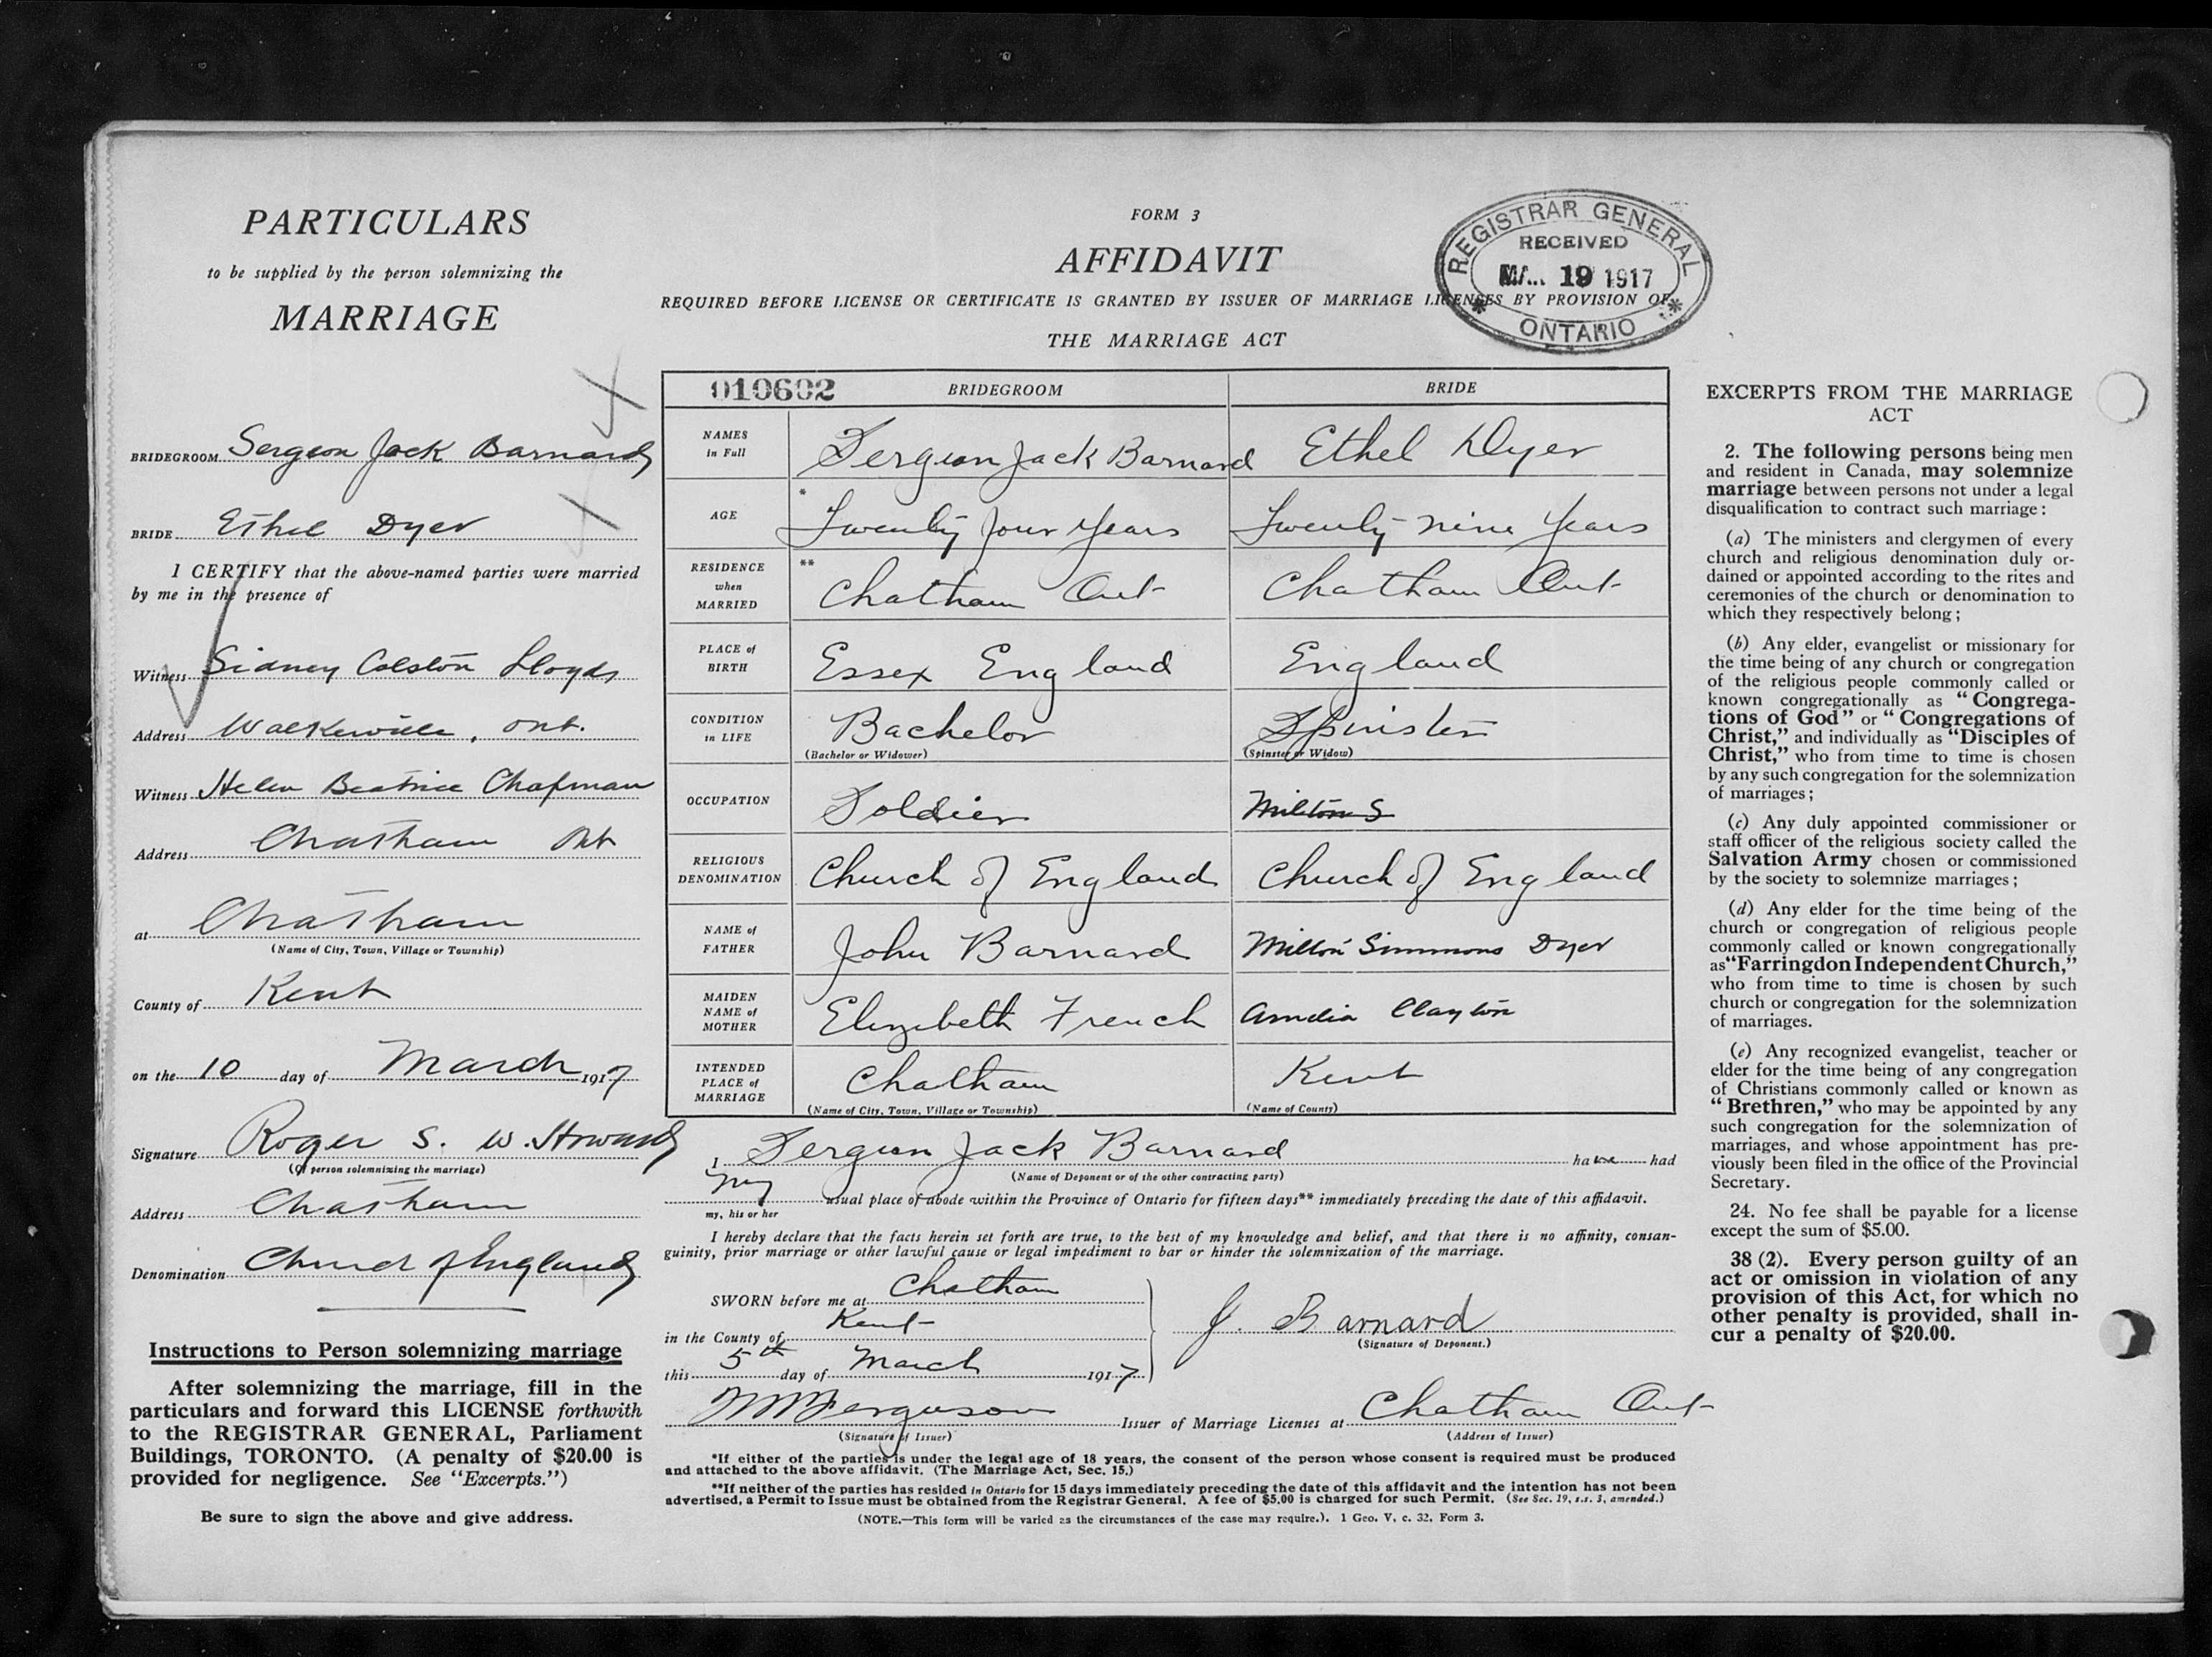 PARTICULARS
to be supplied by the person solemnizing the
MARRIAGE
BRIDEGROOM Sergeon Jack Barnard
BRIDE Ethel Dyer
I CERTIFY that the above-named parties were married
by me in the presence of
Witness Sidney Colston Lloyds
Address Walkerville, Ont.
Witness Helen Beatrice Chapman
Address Chatham Ont
at Chatham
(Name of City, Town, Village or Township)
County of Kent
on the 10 day of March 1917
Signature Roger S. W. Howard
(Of person solemnizing the marriage)
Address Chatham
Denomination Church of England
Instructions to Person solemnizing marriage
After solemnizing the marriage, fill in the
particulars and forward this LICENSE forthwith
to the REGISTRAR GENERAL, Parliament
Buildings, TORONTO. (A penalty of $20.00 is
provided for negligence. See "Excerpts.")
Be sure to sign the above and give address.
FORM 3
AFFIDAVIT
REQUIRED BEFORE LICENSE OR CERTIFICATE IS GRANTED BY ISSUER OF MARRIAGE LICENSES BY PROVISION OF
THE MARRIAGE ACT
REGISTRAR GENERAL
RECEIVED
19 1917
ONTARIO
010602 BRIDEGROOM BRIDE
NAMES in Full Sergeon Jack Barnard Ethel Dyer
AGE * Twenty four Years Twenty-nine Years
RESIDENCE when MARRIED ** Chatham Ont Chatham Ont
PLACE of BIRTH Essex England England
CONDITION in LIFE Bachelor Spinster
(Bachelor or Widower) (Spinster or Widow)
OCCUPATION Soldier Milton S
RELIGIOUS DENOMINATION Church of England Church of England
NAME of FATHER John Barnard Milton Simmons Dyer
MAIDEN NAME of MOTHER Elizebeth French Amelia Clayton
INTENDED PLACE of MARRIAGE Chatham Kent
(Name of City, Town, Village or Township) (Name of County)
I Sergeon Jack Barnard have had
(Name of Deponent or of the other contracting party)
my usual place of abode within the Province of Ontario for fifteen days** immediately preceding the date of this affidavit.
my, his or her
I hereby declare that the facts herein set forth are true, to the best of my knowledge and belief, and that there is no affinity, consan-
guinity, prior marriage or other lawful cause or legal impediment to bar or hinder the solemnization of the marriage.
SWORN before me at Chatham
in the County of Kent
this 5th day of March 1917
J. Barnard
(Signature of Deponent.)
W M Ferguson Issuer of Marriage Licenses at Chatham Ont
(Signature of Issuer) (Address of Issuer)
*If either of the parties is under the legal age of 18 years, the consent of the person whose consent is required must be produced
and attached to the above affidavit. (The Marriage Act, Sec. 15.)
**If neither of the parties has resided in Ontario for 15 days immediately preceding the date of this affidavit and the intention has not been
advertised, a Permit to Issue must be obtained from the Registrar General. A fee of $5.00 is charged for such Permit. (See Sec. 19, s.s. 3, amended.)
(NOTE.—This form will be varied as the circumstances of the case may require.). 1 Geo. V, c. 32, Form 3.
EXCERPTS FROM THE MARRIAGE
ACT
2. The following persons being men
and resident in Canada, may solemnize
marriage between persons not under a legal
disqualification to contract such marriage:
(a) The ministers and clergymen of every
church and religious denomination duly or-
dained or appointed according to the rites and
ceremonies of the church or denomination to
which they respectively belong;
(b) Any elder, evangelist or missionary for
the time being of any church or congregation
of the religious people commonly called or
known congregationally as "Congrega-
tions of God" or "Congregations of
Christ," and individually as "Disciples of
Christ," who from time to time is chosen
by any such congregation for the solemnization
of marriages;
(c) Any duly appointed commissioner or
staff officer of the religious society called the
Salvation Army chosen or commissioned
by the society to solemnize marriages;
(d) Any elder for the time being of the
church or congregation of religious people
commonly called or known congregationally
as "Farringdon Independent Church,"
who from time to time is chosen by such
church or congregation for the solemnization
of marriages.
(e) Any recognized evangelist, teacher or
elder for the time being of any congregation
of Christians commonly called or known as
"Brethren," who may be appointed by any
such congregation for the solemnization of
marriages, and whose appointment has pre-
viously been filed in the office of the Provincial
Secretary.
24. No fee shall be payable for a license
except the sum of $5.00.
38 (2). Every person guilty of an
act or omission in violation of any
provision of this Act, for which no
other penalty is provided, shall in-
cur a penalty of $20.00.